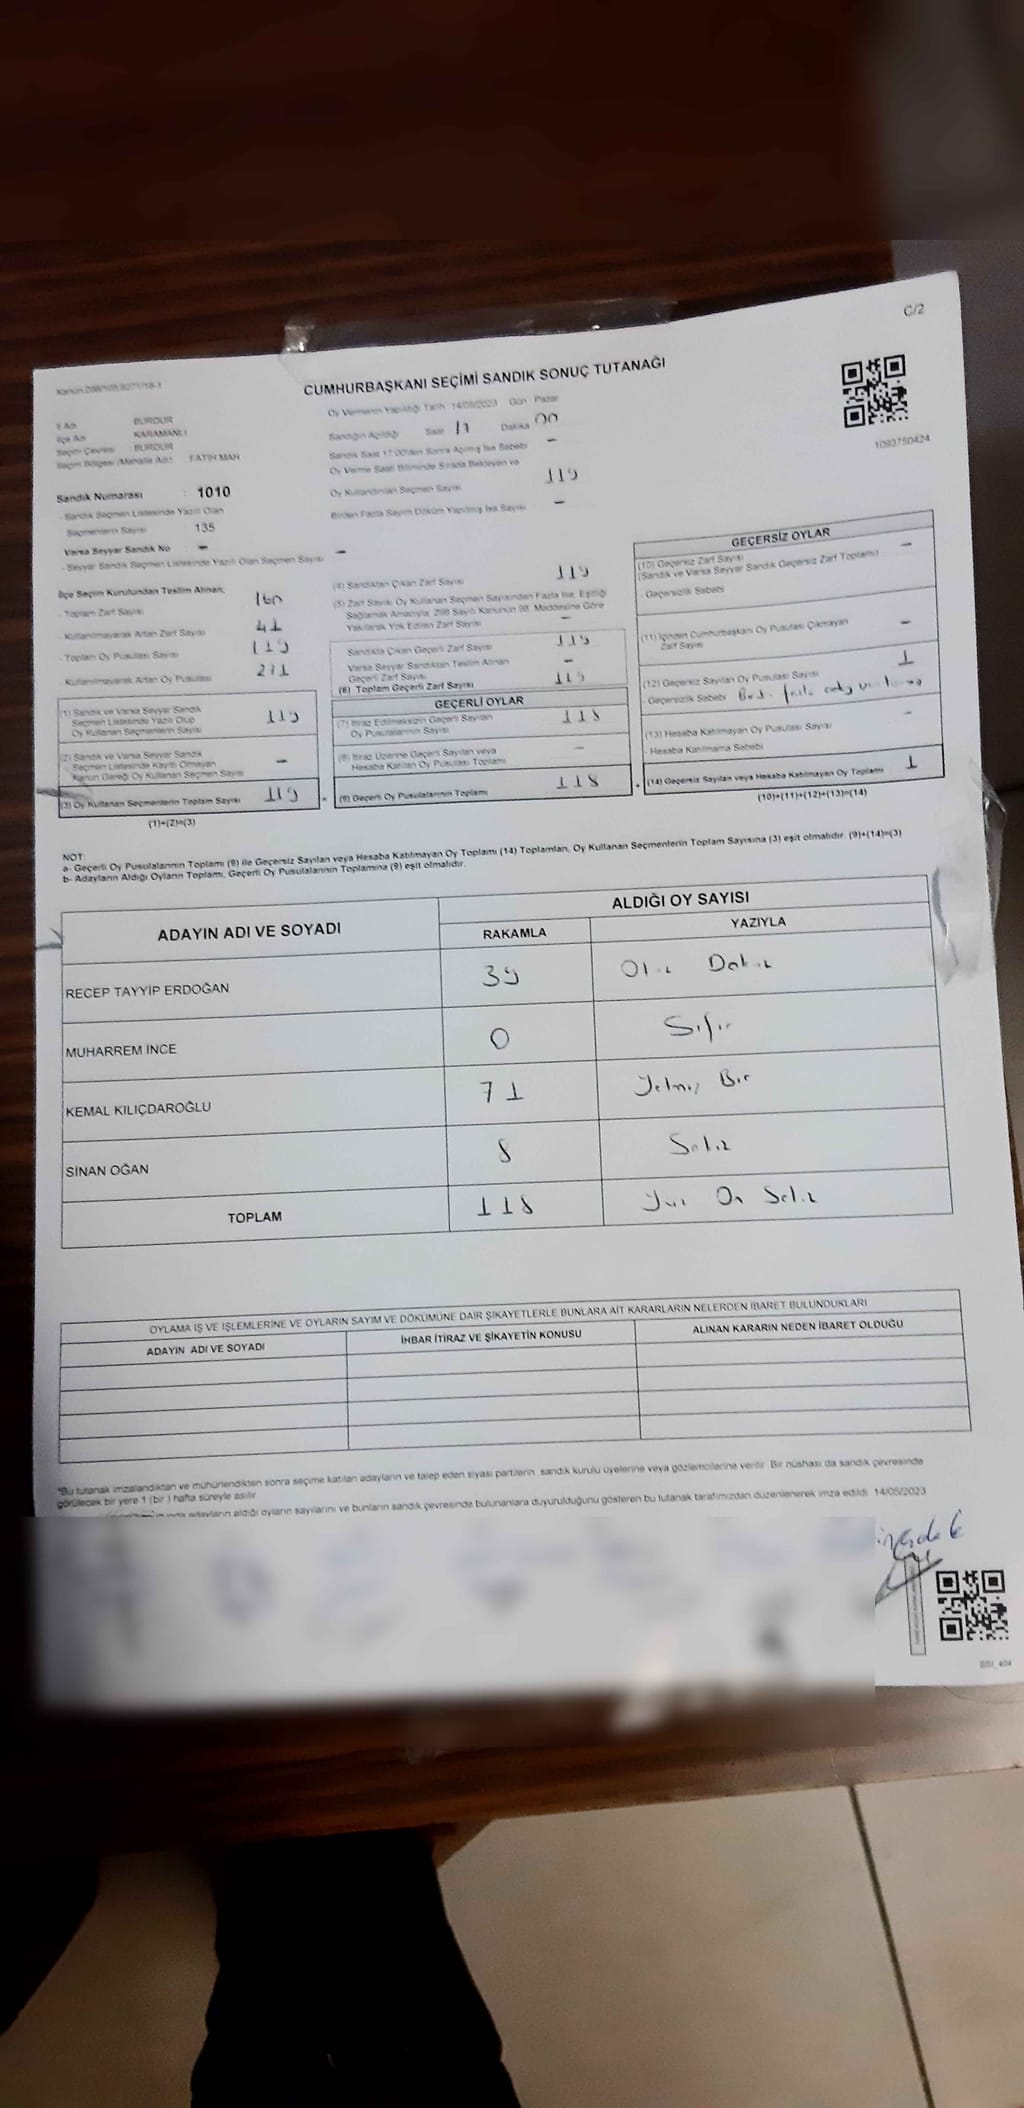 C/2
Kanun:298/105,6271/18-1
CUMHURBAŞKANI SEÇİMİ SANDIK SONUÇ TUTANAĞI
1093750424
İl Adı : BURDUR
İlçe Adı : KARAMANLI
Seçim Çevresi : BURDUR
Seçim Bölgesi (Mahalle Adı) : FATİH MAH
Sandık Numarası : 1010
- Sandık Seçmen Listesinde Yazılı Olan
Seçmenlerin Sayısı 135
Varsa Seyyar Sandık No : -
- Seyyar Sandık Seçmen Listesinde Yazılı Olan Seçmen Sayısı -
Oy Vermenin Yapıldığı Tarih: 14/05/2023 Gün : Pazar
Sandığın Açıldığı Saat 17 Dakika 00
Sandık Saat 17:00'den Sonra Açılmış İse Sebebi -
Oy Verme Saati Bitiminde Sırada Bekleyen ve
Oy Kullandırılan Seçmen Sayısı 119
Birden Fazla Sayım Döküm Yapılmış İse Sayısı -
İlçe Seçim Kurulundan Teslim Alınan;
- Toplam Zarf Sayısı 160
- Kullanılmayarak Artan Zarf Sayısı 41
- Toplam Oy Pusulası Sayısı
- Kullanılmayarak Artan Oy Pusulası
(1) Sandık ve Varsa Seyyar Sandık
Seçmen Listesinde Yazılı Olup
Oy Kullanan Seçmenlerin Sayısı 119
(2) Sandık ve Varsa Seyyar Sandık
Seçmen Listesinde Kayıtlı Olmayan
Kanun Gereği Oy Kullanan Seçmen Sayısı -
(3) Oy Kullanan Seçmenlerin Toplam Sayısı 119
(1)+(2)=(3)
(4) Sandıktan Çıkan Zarf Sayısı 119
(5) Zarf Sayısı Oy Kullanan Seçmen Sayısından Fazla İse, Eşitliği
Sağlamak Amacıyla, 298 Sayılı Kanunun 98. Maddesine Göre
Yakılarak Yok Edilen Zarf Sayısı -
Sandıkta Çıkan Geçerli Zarf Sayısı 119
Varsa Seyyar Sandıktan Teslim Alınan
Geçerli Zarf Sayısı -
(6) Toplam Geçerli Zarf Sayısı 119
GEÇERLİ OYLAR
(7) İtiraz Edilmeksizin Geçerli Sayılan
Oy Pusulalarının Sayısı 118
(8) İtiraz Üzerine Geçerli Sayılan veya
Hesaba Katılan Oy Pusulası Toplamı -
(9) Geçerli Oy Pusulalarının Toplamı 118
GEÇERSİZ OYLAR
(10) Geçersiz Zarf Sayısı -
(Sandık ve Varsa Seyyar Sandık Geçersiz Zarf Toplamı)
- Geçersizlik Sebebi
(11) İçinden Cumhurbaşkanı Oy Pusulası Çıkmayan
Zarf Sayısı -
(12) Geçersiz Sayılan Oy Pusulası Sayısı 1
- Geçersizlik Sebebi
(13) Hesaba Katılmayan Oy Pusulası Sayısı -
- Hesaba Katılmama Sebebi
(14) Geçersiz Sayılan veya Hesaba Katılmayan Oy Toplamı 1
(10)+(11)+(12)+(13)=(14)
NOT:
a- Geçerli Oy Pusulalarının Toplamı (9) ile Geçersiz Sayılan veya Hesaba Katılmayan Oy Toplamı (14) Toplamları, Oy Kullanan Seçmenlerin Toplam Sayısına (3) eşit olmalıdır. (9)+(14)=(3)
b- Adayların Aldığı Oyların Toplamı, Geçerli Oy Pusulalarının Toplamına (9) eşit olmalıdır.
ADAYIN ADI VE SOYADI
ALDIĞI OY SAYISI
RAKAMLA YAZIYLA
RECEP TAYYİP ERDOĞAN 39 Otuz Dokuz
MUHARREM İNCE 0 Sıfır
KEMAL KILIÇDAROĞLU 71 Yetmiş Bir
SİNAN OĞAN 8 Sekiz
TOPLAM 118 Yüz On Sekiz
OYLAMA İŞ VE İŞLEMLERİNE VE OYLARIN SAYIM VE DÖKÜMÜNE DAİR ŞİKAYETLERLE BUNLARA AİT KARARLARIN NELERDEN İBARET BULUNDUKLARI
ADAYIN ADI VE SOYADI İHBAR İTİRAZ VE ŞİKAYETİN KONUSU ALINAN KARARIN NEDEN İBARET OLDUĞU
*Bu tutanak imzalandıktan ve mühürlendikten sonra seçime katılan adayların ve talep eden siyasi partilerin sandık kurulu üyelerine veya gözlemcilerine verilir. Bir nüshası da sandık çevresinde
görülecek bir yere 1 (bir ) hafta süreyle asılır.
adayların aldığı oyların sayılarını ve bunların sandık çevresinde bulunanlara duyurulduğunu gösteren bu tutanak tarafımızdan düzenlenerek imza edildi. 14/05/2023